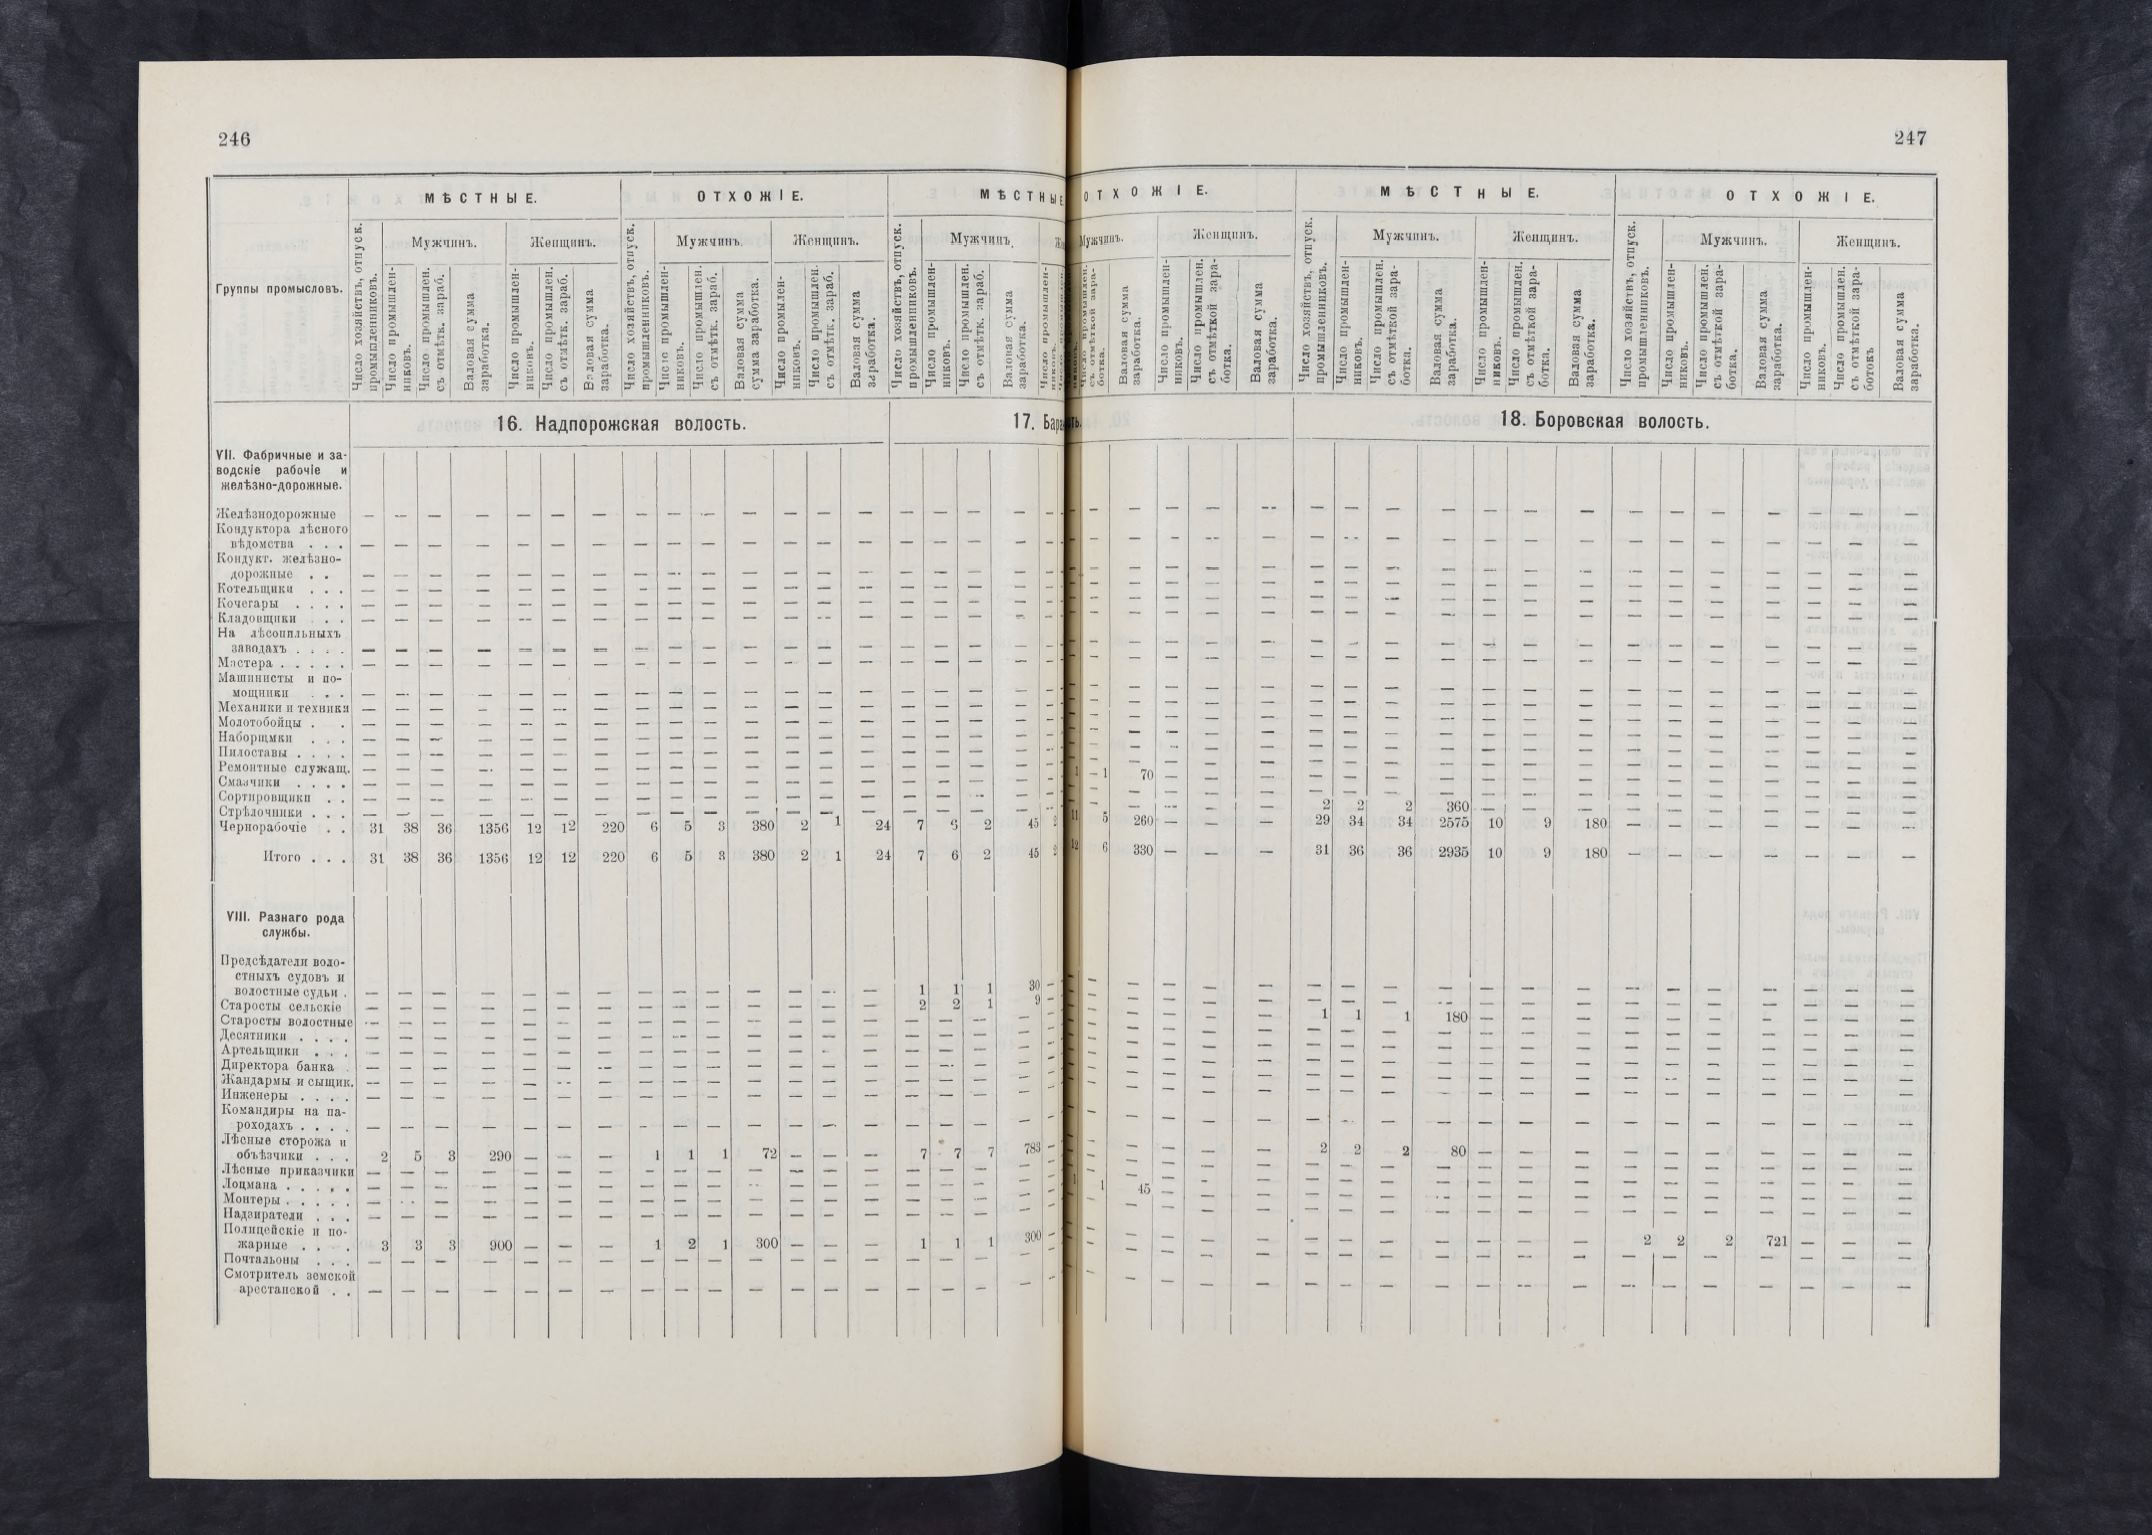 246
247
МѢСТНЫЕ. ОТХОЖІЕ. МѢСТНЫЕ
ОТХОЖІЕ. МѢСТНЫЕ. ОТХОЖІЕ.
Группы промысловъ.
Число хозяйствъ, отпуск. промышленниковъ.
Мужчинъ. Женщинъ.
Число промышлен-никовъ.
Число промышлен. съ отмѣтк. зараб.
Валовая сумма заработка.
Число промышлен-никовъ.
Число промышлен. съ отмѣтк. зараб.
Валовая сумма заработка.
Число хозяйствъ, отпуск. промышленниковъ.
Мужчинъ. Женщинъ.
Число промышлен-никовъ.
Число промышлен. съ отмѣтк. зараб.
Валовая сумма сумма заработка.
Число промылен-никовъ.
Число промышлен. съ отмѣтк. зараб.
Валовая сумма заработка.
Число хозяйствъ, отпуск. промышленниковъ.
Мужчинъ.
Число промышлен-никовъ.
Число промышлен. съ отмѣтк. зараб.
Валовая сумма заработка.
Мужчинъ. Женщинъ.
Валовая сумма заработка.
Число промышлен-никовъ.
Число промышлен. съ отмѣткой зара-ботка.
Валовая сумма заработка.
Число хозяйствъ, отпуск. промышленниковъ.
Мужчинъ. Женщинъ.
Число промышлен-никовъ.
Число промышлен. съ отмѣткой зара-ботка.
Валовая сумма заработка.
Число промышлен-никовъ.
Число промышлен. съ отмѣткой зара-ботка.
Валовая сумма заработка.
Число хозяйствъ, отпуск. промышленниковъ.
Мужчинъ. Женщинъ.
Число промышлен-никовъ.
Число промышлен. съ отмѣткой зара-ботка.
Валовая сумма заработка.
Число промышлен-никовъ.
Число промышлен. съ отмѣткой зара-ботокъ
Валовая сумма заработка.
16. Надпорожская волость. 17. Бара
18. Боровская волость.
VII. Фабричные и за-
водскіе рабочіе и
желѣзно-дорожные.
Желѣзнодорожные — — — — — — — — — — — — — — — — — —
Кондуктора лѣсного
вѣдомства . . . — — — — — — — — — — — — — — — — — —
Кондукт. желѣзно-
дорожные . . — — — — — — — — — — — — — — — — — —
Котельщики . . . — — — — — — — — — — — — — — — — — —
Кочегары . . . . — — — — — — — — — — — — — — — — — —
Кладовщики . . — — — — — — — — — — — — — — — — — —
На лѣсопильныхъ
заводахъ . . . . — — — — — — — — — — — — — — — — — —
Мастера . . . . . — — — — — — — — — — — — — — — — — —
Машинисты и по-
мощники . . . — — — — — — — — — — — — — — — — — —
Механики и техники — — — — — — — — — — — — — — — — — —
Молотобойцы . . — — — — — — — — — — — — — — — — — —
Наборщмки . . . — — — — — — — — — — — — — — — — — —
Пилоставы . . . . — — — — — — — — — — — — — — — — — —
Ремонтные служащ. — — — — — — — — — — — — — — — — — — 1 70 — — —
Смазчики . . . . — — — — — — — — — — — — — — — — — —
Сортировщики . . — — — — — — — — — — — — — — — — — —
Стрѣлочники . . . — — — — — — — — — — — — — — — — — — 2 2 2 360 — — — — — — — — — —
Чернорабочіе . . 31 38 36 1356 12 12 220 6 5 3 380 2 1 24 7 6 2 45 2 11 5 260 — — — 29 34 34 2575 10 9 180 — — — — — — —
Итого . . . 31 38 36 1356 12 12 220 6 5 3 380 2 1 24 7 6 2 45 2 12 6 330 — — — 31 36 36 2935 10 9 180 — — — — — — —
VIII. Разнаго рода
службы.
Предсѣдатели воло-
стныхъ судовъ и
волостные судьи . — — — — — — — — — — — — — — 1 1 1 30
Старосты сельскіе — — — — — — — — — — — — — — 2 2 1 9
Старосты волостные — — — — — — — — — — — — — — — — — — 1 1 1 180 — — — — — — — — — —
Десятники . . . . — — — — — — — — — — — — — — — — — —
Артельщики . . . — — — — — — — — — — — — — — — — — —
Директора банка . — — — — — — — — — — — — — — — — — —
Жандармы и сыщик. — — — — — — — — — — — — — — — — — —
Инженеры . . . . — — — — — — — — — — — — — — — — — —
Командиры на па-
роходахъ . . . . — — — — — — — — — — — — — — — — — —
Лѣсные сторожа и
объѣзчики . . . 2 5 3 290 — — — 1 1 1 72 — — — 7 7 7 783 — 2 2 2 80 — — — — — — — — — —
Лѣсные приказчики — — — — — — — — — — — — — — — — — —
Лоцмана . . . . . — — — — — — — — — — — — — — — — — — 1 45 — — —
Монтеры . . . . . — — — — — — — — — — — — — — — — — —
Надзиратели . . . — — — — — — — — — — — — — — — — — —
Полицейскіе и по-
жарные . . . . 3 3 3 900 — — — 1 2 1 300 — — — 1 1 1 300 — 2 2 2 721 — — —
Почтальоны . . . — — — — — — — — — — — — — — — — — —
Смотритель земской
арестанской . . — — — — — — — — — — — — — — — — — —